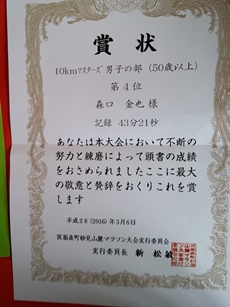 賞状
10kmマスターズ 男子の部 (50歳以上)
第4位
森口 金也 様
記録 43分21秒
あなたは本大会において不断の
努力と練磨によって頭書の成績
をおさめられましたここに最大
の敬意と賛辞をおくりこれを賞
します
平成28(2016)年3月6日
箕面森町妙見山麓マラソン大会実行委員会
実行委員長 新 松敏